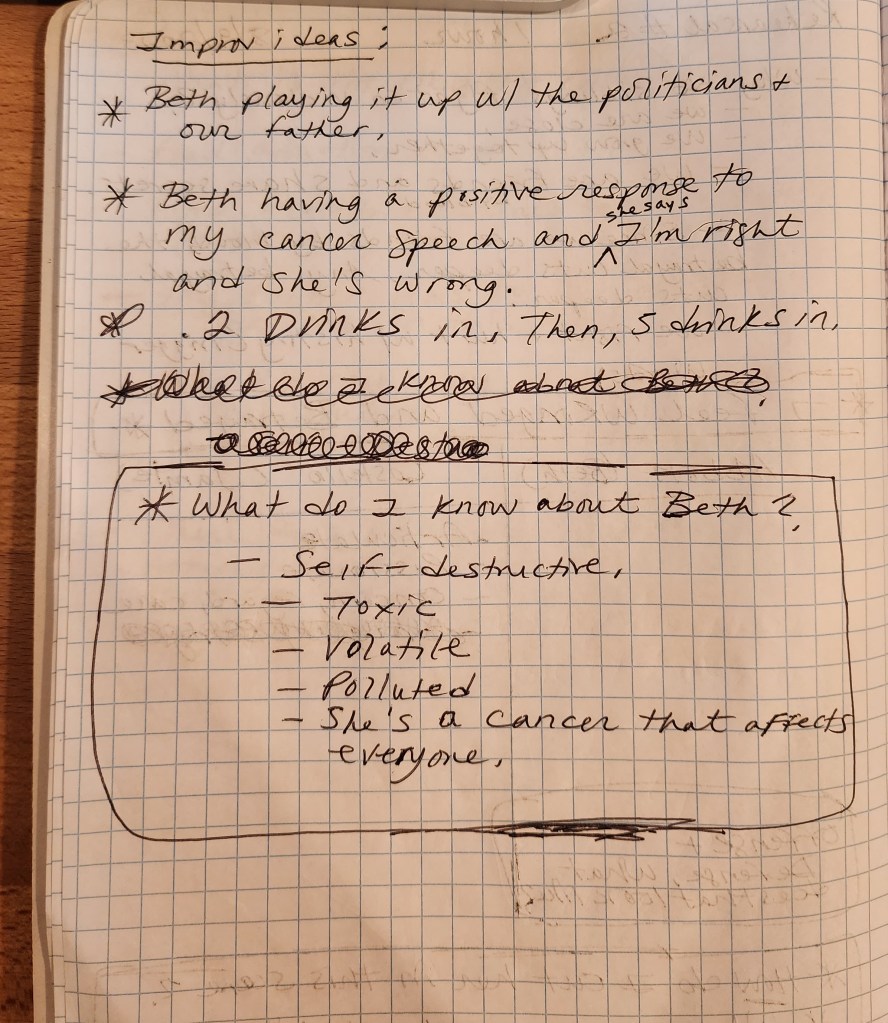 Improv ideas:
* Beth playing it up w/ the politicians +
our father.
* Beth having a positive response to
she says
my cancer speech and ^ I'm right
and she's wrong.
* . 2 Drinks in, Then, 5 drinks in.
* What do I know about Beth?
* What do I know about Beth?
- Self-destructive.
- Toxic
- Volatile
- Polluted
- She's a cancer that affects
everyone.